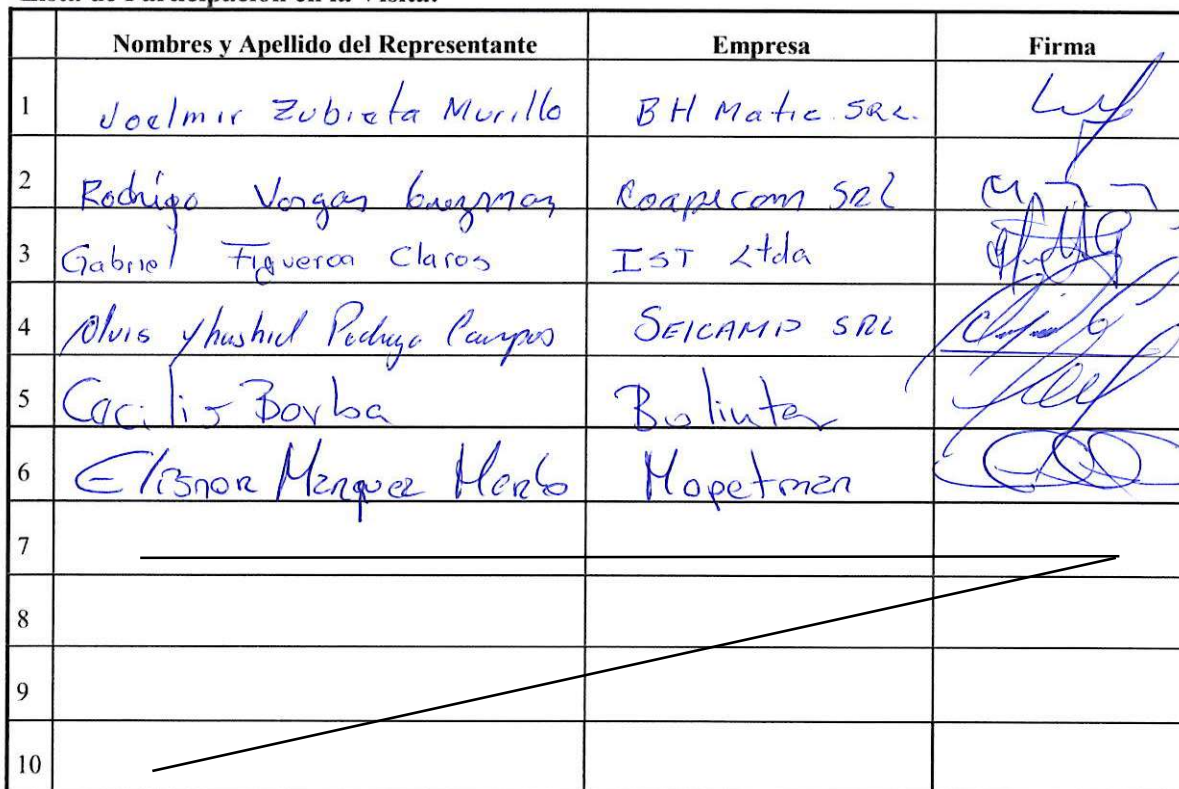 Lista de Participación en la Visita:
Nombres y Apellido del Representante Empresa Firma
1 Joelmir Zubieta Murillo BH Matic SRL.
2 Rodrigo Vargas Guzman Coapecom SRL
3 Gabriel Figueroa Claros IST Ltda
4 Campos SEICAMP SRL
5 Borba Bolinter
6 Marquez Mopetman
7
8
9
10